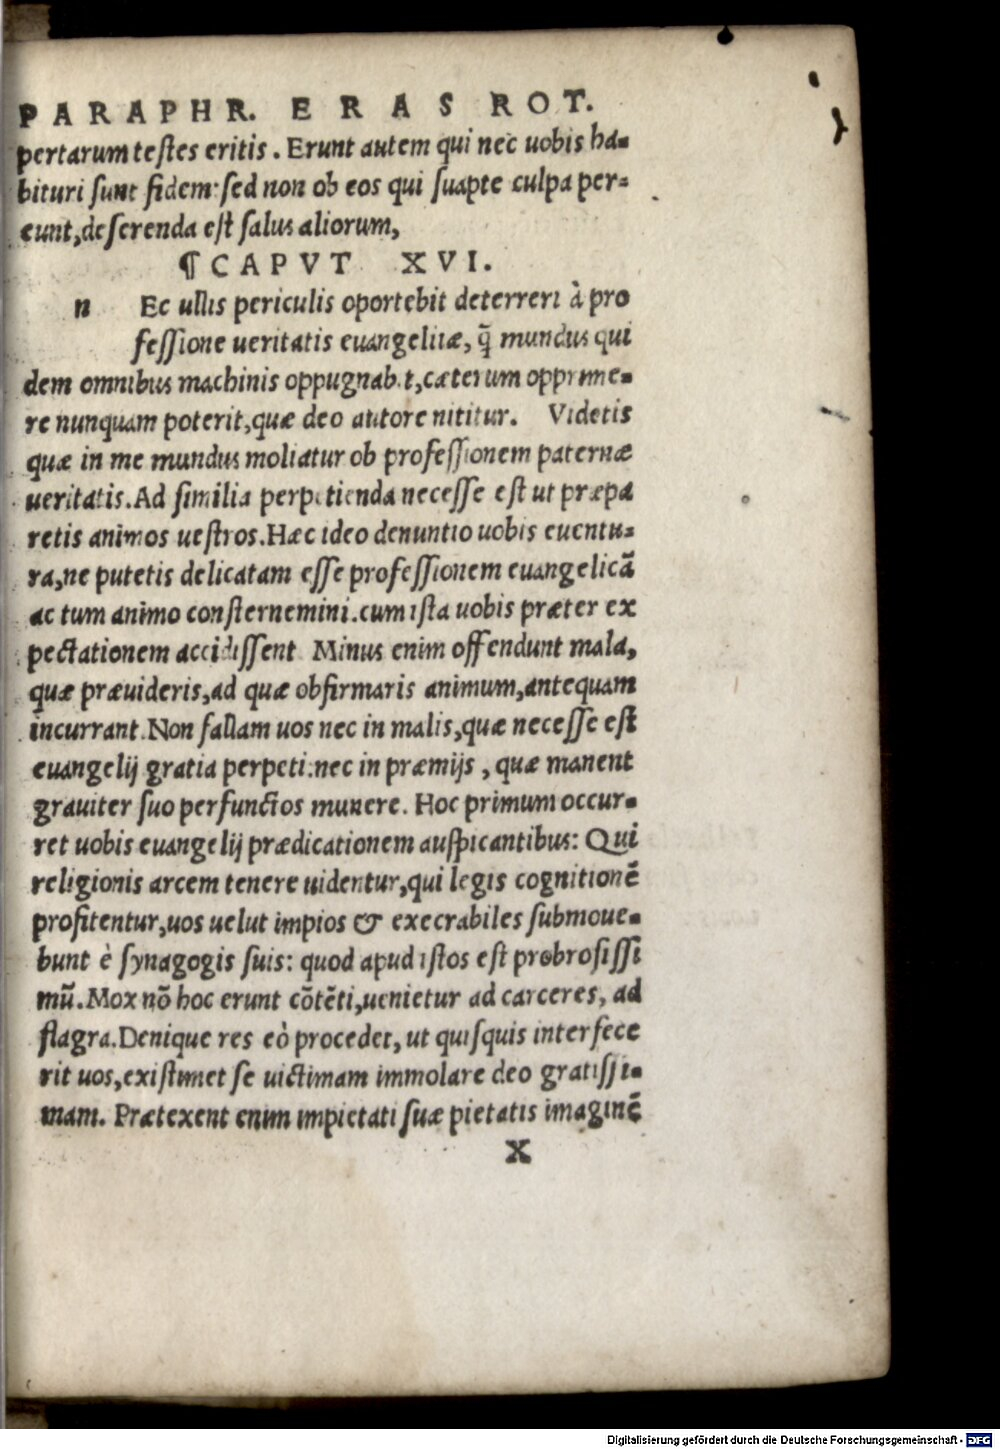 PARAPHR. ERAS ROT.
pertarum testes eritis. Erunt autem qui nec uobis ha-
bituri sunt fidem: sed non ob eos qui suapte culpa per-
eunt, deserenda est salus aliorum,
¶ CAPVT XVI.
n Ec ullis periculis oportebit deterreri à pro
fessione ueritatis euangelicæ, q̃ mundus qui
dem omnibus machinis oppugnabit, cæterum opprime-
re nunquam poterit, quæ deo autore nititur. Videtis
quæ in me mundus moliatur ob professionem paternæ
ueritatis. Ad similia perpetienda necesse est ut præpa
retis animos uestros. Hæc ideo denuntio uobis euentu-
ra, ne putetis delicatam esse professionem euangelicã
ac tum animo consternemini. cum ista uobis præter ex
pectationem accidissent Minus enim offendunt mala,
quæ præuideris, ad quæ obfirmaris animum, antequam
incurrant. Non fallam uos nec in malis, quæ necesse est
euangelij gratia perpeti: nec in præmijs, quæ manent
grauiter suo perfunctos munere. Hoc primum occur-
ret uobis euangelij prædicationem auspicantibus: Qui
religionis arcem tenere uidentur, qui legis cognitionẽ
profitentur, uos uelut impios & execrabiles submoue-
bunt è synagogis suis: quod apud istos est probrosissi
mũ. Mox nõ hoc erunt cõtẽti, uenietur ad carceres, ad
flagra. Denique res eò procedet, ut quisquis interfece
rit uos, existimet se uictimam immolare deo gratissi-
mam. Prætexent enim impietati suæ pietatis imaginẽ
X
Digitalisierung gefördert durch die Deutsche Forschungsgemeinschaft - DFG